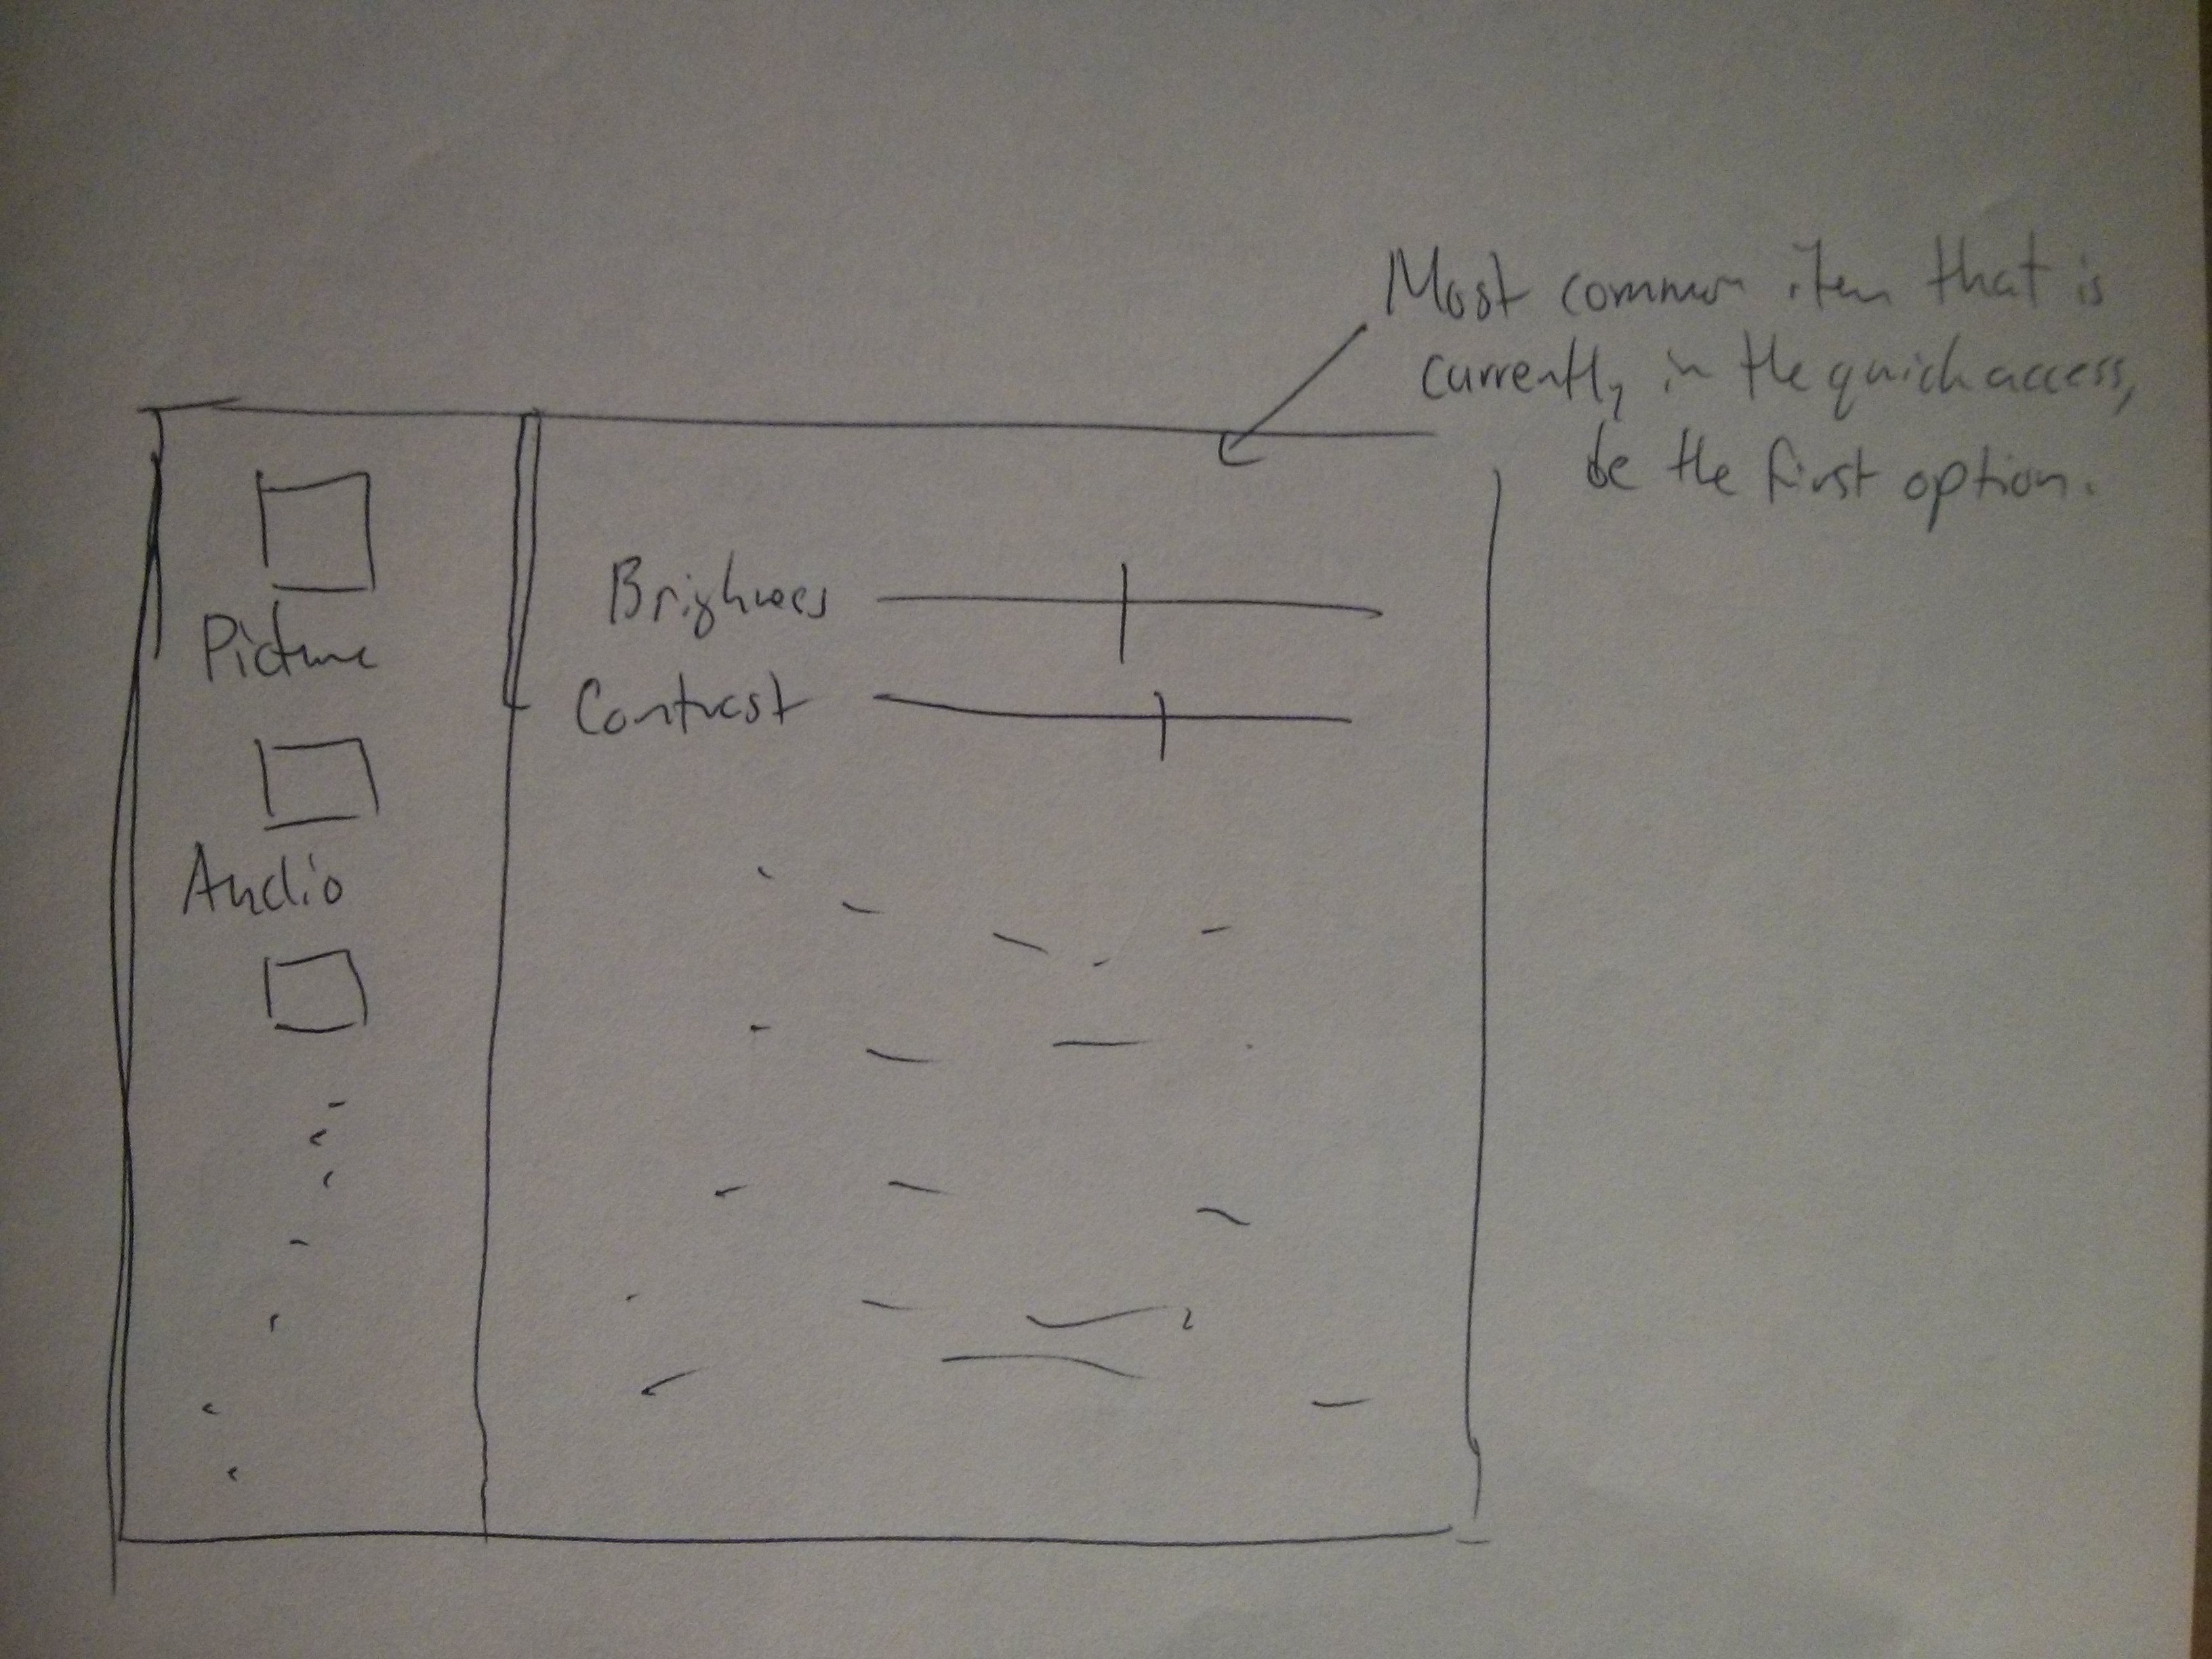 Most common item that is
currently in the quick access,
be the first option.
Picture
Audio
Brighness
Contrast